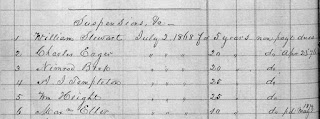 Suspensions, &c—
1 William Stewart July 2, 1868 for 5 years non pay't dues
2 Charles Eager " " " 20 " do Apr 25
3 Nimrod " " " 25 " do
4 A J Templeton " " " 20 " do
5 Wm Height " " " 25 " do
6 Eller " " " 10 " do pd May